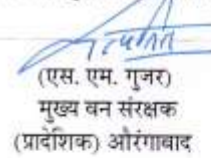 (एस. एम. गुजर)
मुख्य वन संरक्षक
(प्रादेशिक) औरंगाबाद